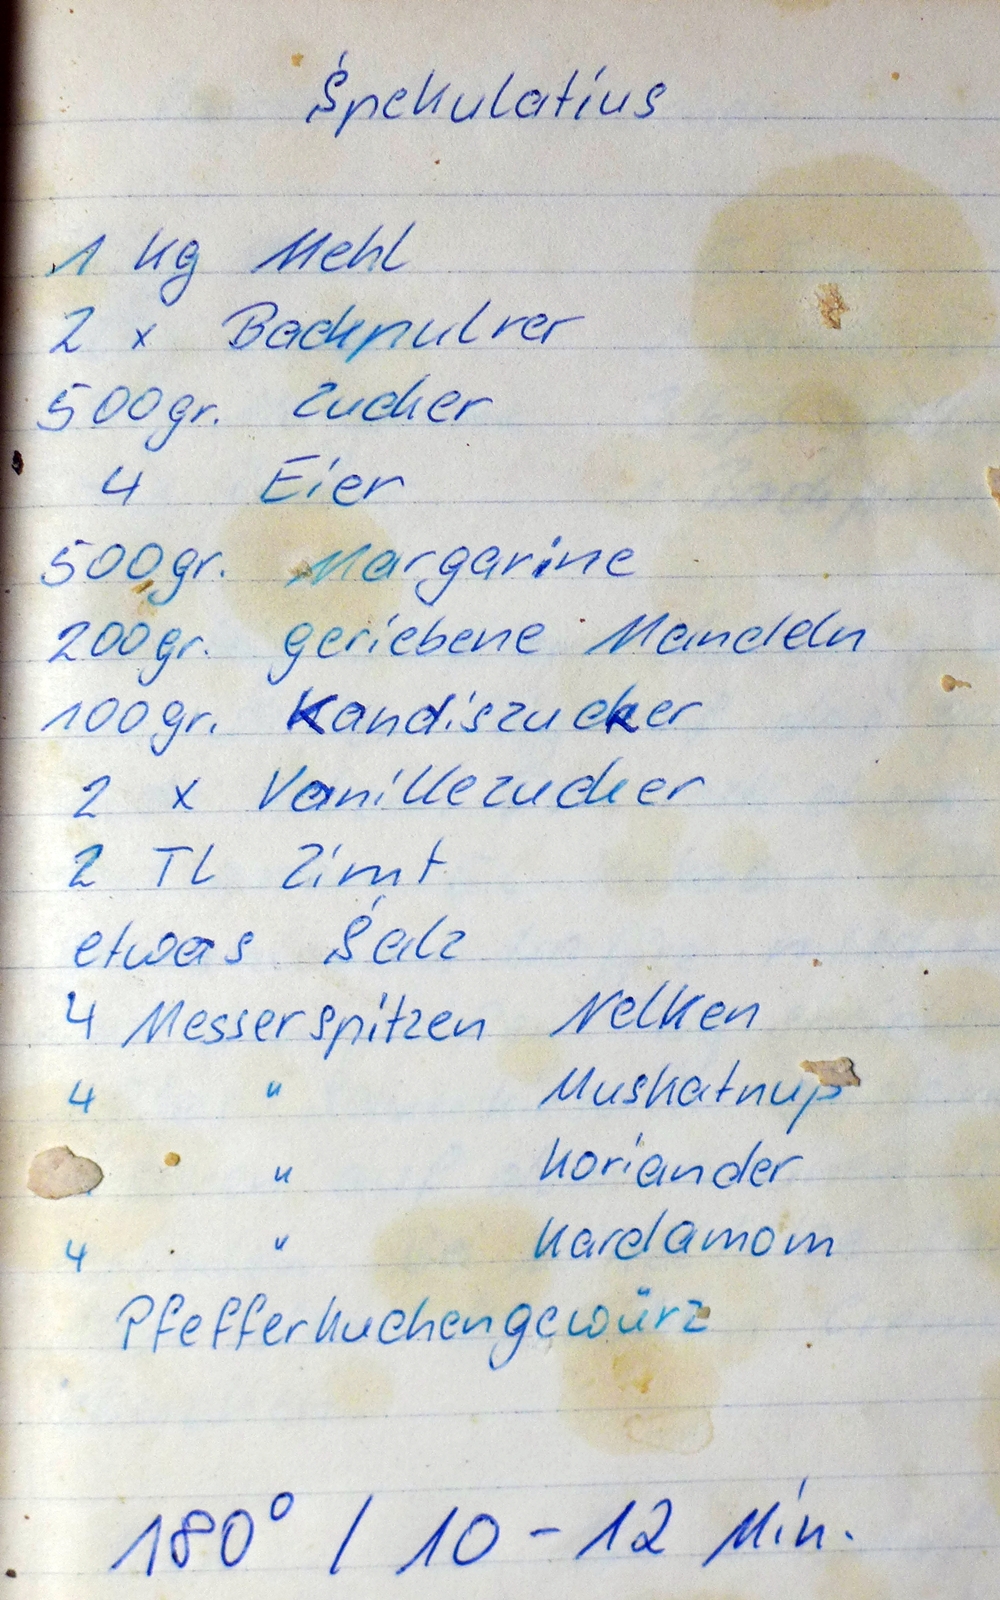 Spekulatius
1 kg Mehl
2 x Backpulver
500gr. Zucker
4 Eier
500gr. Margarine
200gr. geriebene Mandeln
100gr. Kandiszucker
2 x Vanillezucker
2 TL Zimt
etwas Salz
4 Messerspitzen Nelken
4 " Muskatnuß
" Koriander
4 " Kardamom
Pfefferkuchengewürz
180° / 10 - 12 Min.